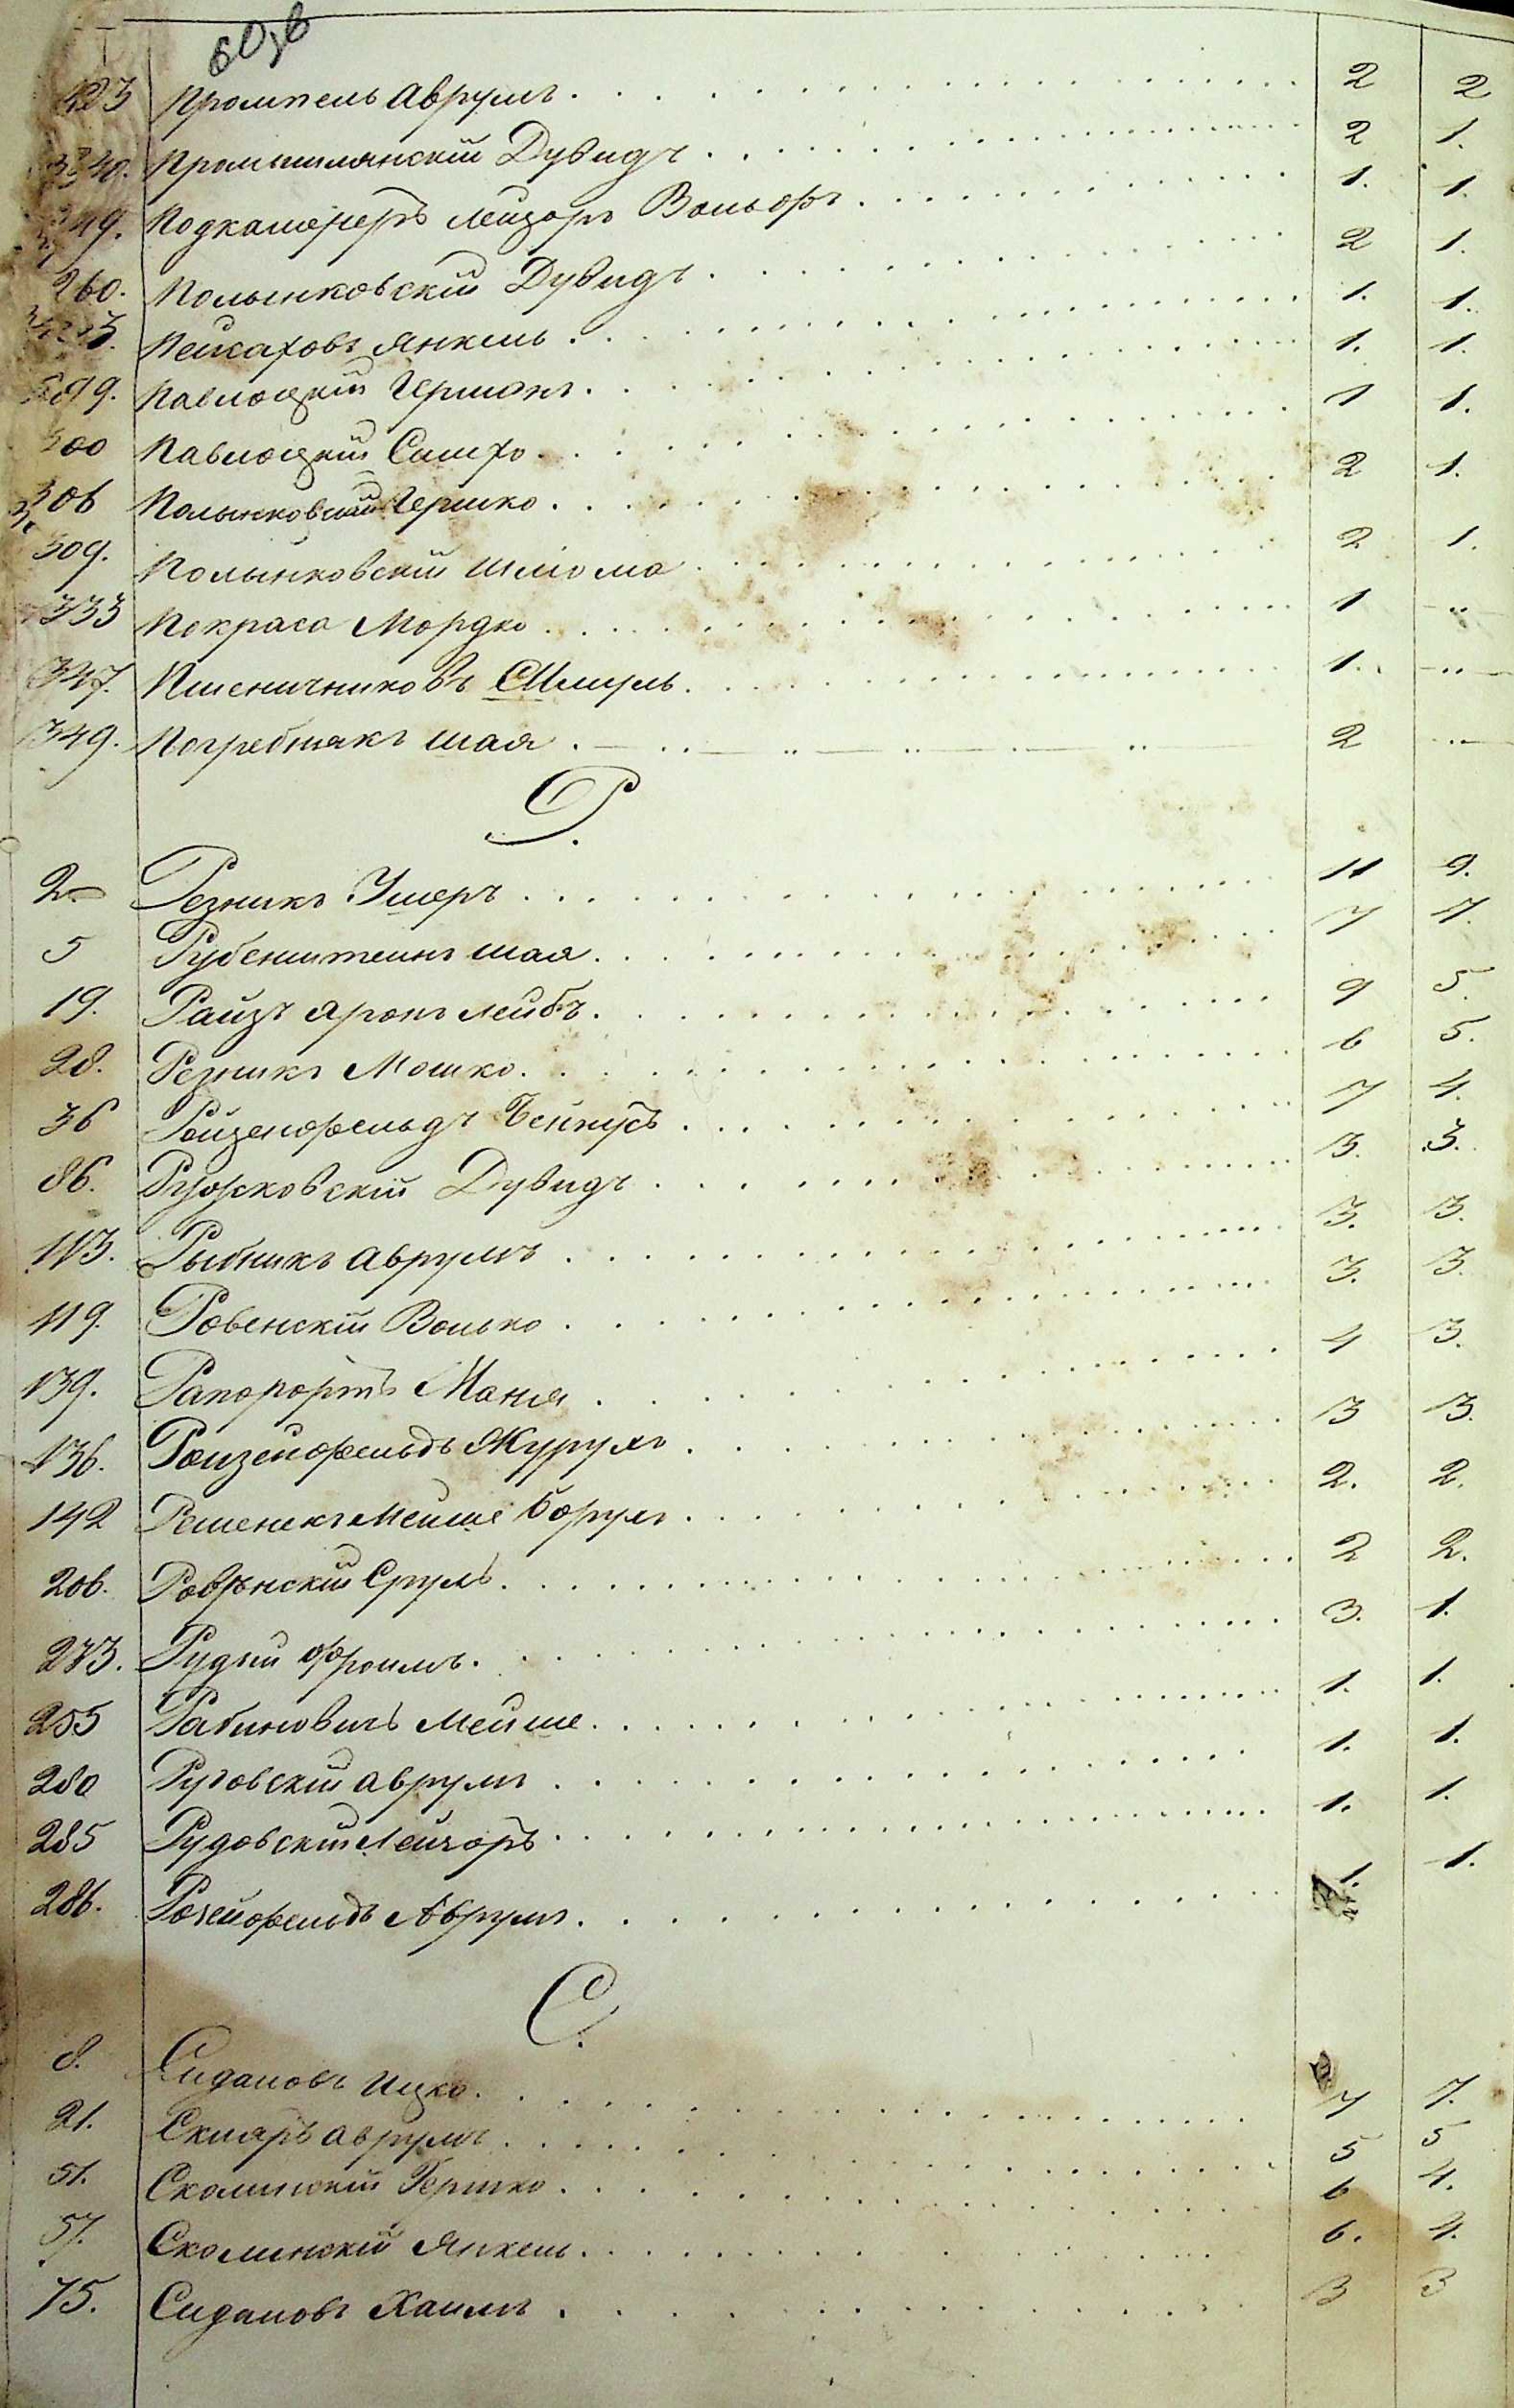 423 Промпель Аврумъ 2 2
Промышлянскій Дувидъ 2 1.
Подкамереръ Лейзоръ Вольфъ 1. 1.
260. Полынковскій Дувидъ 2 1.
Пейсаховъ Янкель 1. 1.
Павлоцкій Гершонъ 1. 1.
300 Павлоцкій Симхо 1 1.
306 Полынковскій Гершко 2 1.
309. Полынковскій Шлiома 2 1.
333 Покраса Мордко 1 -"-
347. Пшеничниковъ Шмуль 1. -"-
349. Погребнякъ Шая 2 -"-
Р.
2 Резникъ Ушеръ 11 9.
5 Рубенштеинъ Шая 7 7.
19. Райзъ Аронъ Лейбъ 9 5.
28. Резникъ Мошко 6 5.
36 Ройзенфельдъ Бейнусъ 7 4.
86. Ружковскій Дувидъ 3. 3.
113. Рыбникъ Аврумъ 3. 3.
119. Ровенскій Волько 3. 3.
139. Рапопортъ Маня 4 3.
136. Роизенфельдъ 3 3.
142 Мейше Борухъ 2. 2.
206. Ровѣнскій Сруль 2 2.
233. Рудый Фроимъ 3. 1.
255 Рабиновичъ Мейше 1. 1.
280 Рудовскій Аврумъ 1. 1.
285 Рудовскій Лейзоръ 1. 1.
286. Розенфельдъ Аврумъ 1. 1.
С.
8. Сидановъ Ицко 7 7.
21. Скляръ Аврумъ 5 5
51. Сколинскій Гершко 6 4.
57. Сколинскій Янкель 6. 4.
75. Сидановъ Хаимъ 3 3